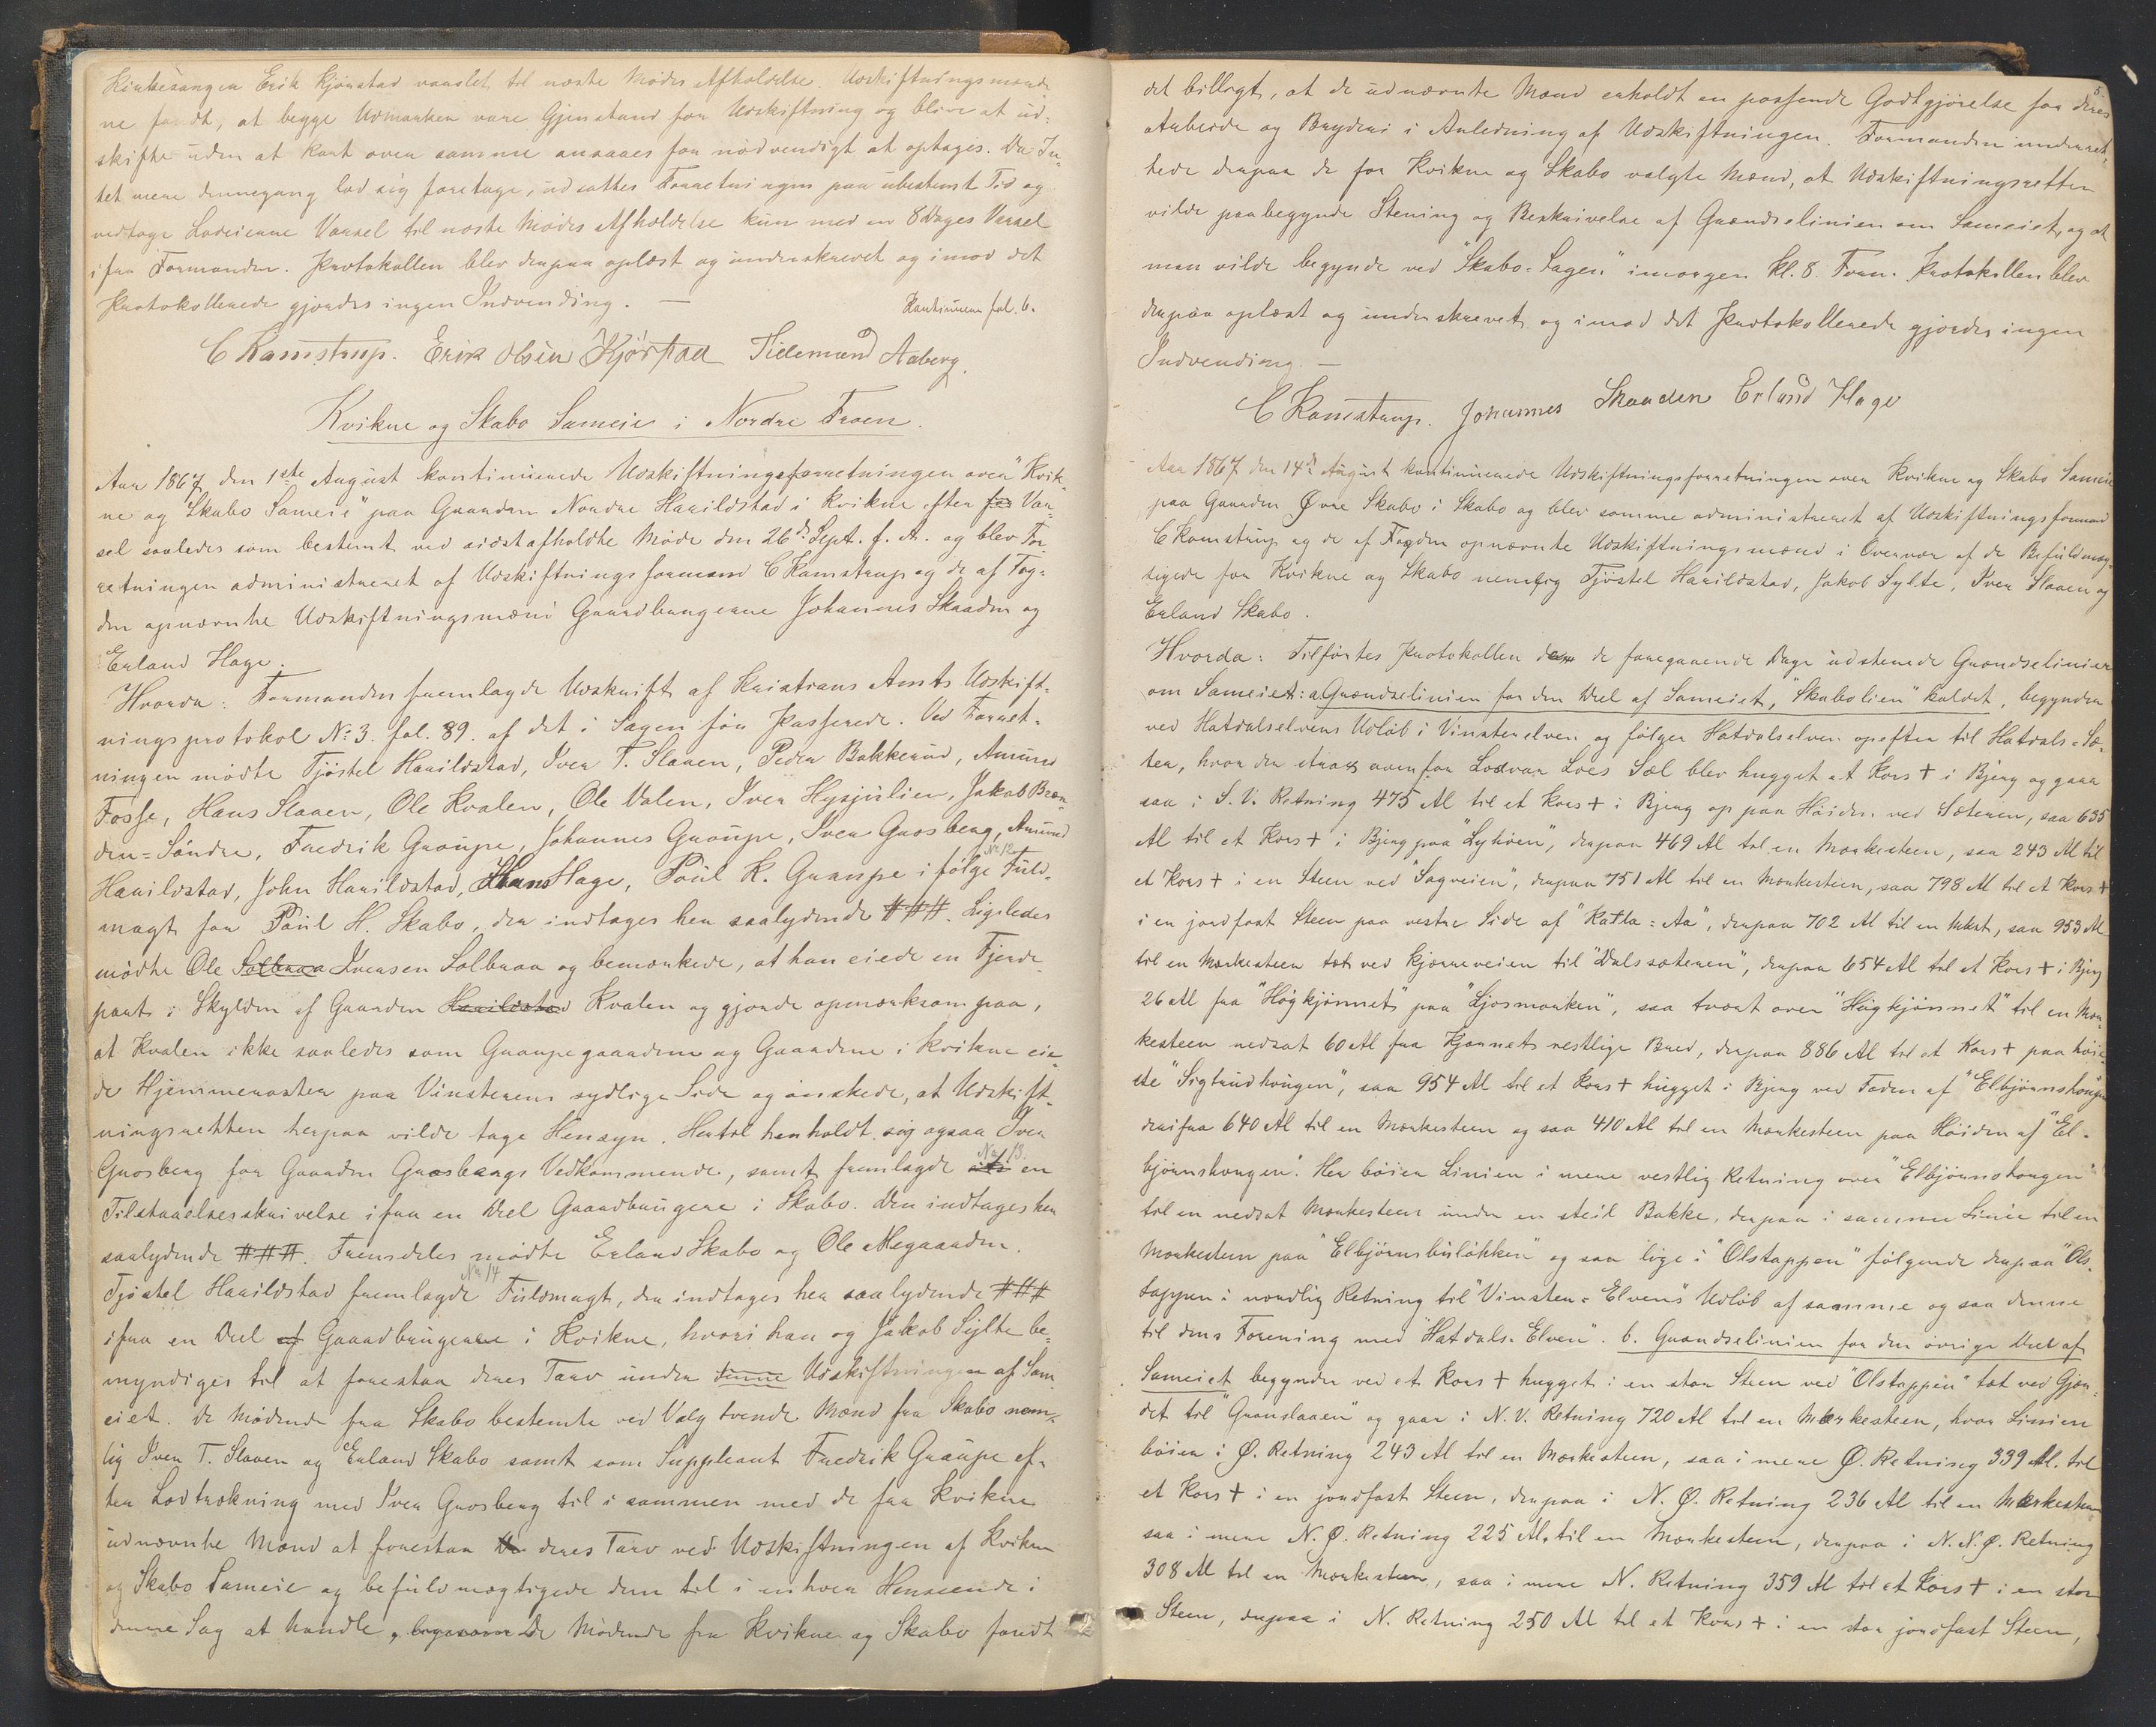 Kirkesanger Erik Kjørstad varslet til næste Mødes Afholdelse. Udskiftningsmænde
ne fandt, at begge Udmarker vare Gjenstand for Udskiftning og blive at ud-
skifte uden at Kart over samme ansaaes for nødvendigt at optages. Da In-
tet mere dennegang lod sig foretage, udsattes Forretningen paa ubestemt Tid og
vedtoge Lodeierne Varsel til næste Mødes Afholdelse kun med en 8 Dages Varsel
ifra Formanden. Protokollen blev derpaa oplæst og underskrevet og imod det
Protokollerede gjordes ingen Indvending. —
Kontinuerer fol. 6.
C Ramstrup. Erik Olsen Kjørstad Tidemand Aaberg.
Kvikne og Skabo Sameie i Nordre Froen.
Aar 1867 den 1ste August kontinuerede Udskiftningsforretningen over "Kvik-
ne og Skabo Sameie" paa Gaarden Nordre Harildstad i Kvikne efter for Var-
sel saaledes som bestemt ved sidstafholdte Møde den 26de Sept. f. A. og blev For
retningen administreret af Udskiftningsformand C Ramstrup og de af Fog-
den opnævnte Udskiftningsmænd Gaardbrugerne Johannes Skaaden og
Erland Hage.
Hvorda: Formanden fremlagde Udskrift af Kristians Amts Udskift-
ningsprotokol No 3. fol. 89. af det i Sagen før Passerede. Ved Forret-
ningen mødte Tjøstel Harildstad, Iver T. Slaaen, Peder Bakkerud, Amund
Fosse, Hans Slaaen, Ole Kvalen, Ole Valen, Iver Hysjulien, Jakob Bræn-
den=Søndre, Fredrik Graupe, Johannes Graupe, Iver Grosberg, Amund
Harildstad, John Harildstad, Hans Hage, Poul K. Graupe i følge No 12 Fuld-
magt for Poul H. Skabo, der indtages her saalydende ###. Ligeledes
mødte Ole Solbraa Iversen Solbraa og bemærkede, at han eiede en Fjerde-
part i Skylden af Gaarden Harildstad Kvalen og gjorde opmærksom paa,
at Kvalen ikke saaledes som Graupegaardene og Gaardene i Kvikne eie
de Hjemmeraster paa Vinsterens sydlige Side og ønskede, at Udskift-
ningsretten herpaa vilde tage Hensyn. Hertil henholdt sig ogsaa Iver
Grosberg for Gaarden Grosbergs Vedkommende, samt fremlagde No 13. en
Tilstaaelsesskrivelse ifra en Deel Gaardbrugere i Skabo. Den indtages her
saalydende ###. Fremdeles mødte Erland Skabo og Ole Megaarden.
Tjøstel Harildstad fremlagde No 14 Fuldmagt, der indtages her saalydende ###
ifra en Deel af Gaardbrugerne i Kvikne, hvori han og Jakob Sylte be-
myndiges til at forestaa deres Tarv under denne Udskiftningen af Sam
eiet. De Mødende fra Skabo bestemte ved Valg tvende Mænd fra Skabo nem-
lig Iver T. Slaaen og Erland Skabo samt som Suppleant Fredrik Graupe ef-
ter Lodtrækning med Iver Grosberg til i sammen med de fra Kvikne
udnævnte Mænd at forestaa deres Tarv ved Udskiftningen af Kvikne
og Skabo Sameie og befuldmægtigede dem til i enhver Henseende i
denne Sag at handle, ligesom De Mødende fra Kvikne og Skabo fandt
5.
det billigt, at de udnævnte Mænd erholdt en passende Godtgjørelse for deres
Arbeide og Bryderi i Anledning af Udskiftningen. Formanden underret-
tede derpaa de for Kvikne og Skabo valgte Mænd, at Udskiftningsretten
vilde paabegynde Stening og Beskrivelse af Grændselinien om Sameiet, og at
man vilde begynde ved "Skabo-Sagen" imorgen Kl. 8. Form. Protokollen blev
derpaa oplæst og underskrevet og imod det Protokollerede gjordes ingen
Indvending. —
C Ramstrup. Johannes Skaaden Erland Hage
Aar 1867 den 14de August kontinuerede Udskiftningsforretningen over Kvikne og Skabo Sameie
paa Gaarden Øvre Skabo i Skabo og blev samme administreret af Udskiftningsformand
C Ramstrup og de af Fogden opnævnte Udskiftningsmænd i Overvær af de Befuldmæg-
tigede for Kvikne og Skabo nemlig Tjøstel Harildstad, Jakob Sylte, Iver Slaaen og
Erland Skabo.
Hvorda: Tilførtes Protokollen de foregaaende Dage udstenede Grændselinier
om Sameiet: a. Grændselinien for den Deel af Sameiet, "Skabolien" kaldet, begynder
ved Hatdalselvens Udløb i Vinsterelven og følger Hatdalselven opefter til Hatdals-Sæ-
ter, hvor der strax ovenfor Lodvar Loes Sæl blev hugget et Kors + i Bjerg og gaar
saa i S. V. Retning 475 Al til et Kors + i Bjerg op paa Høiden ved Sæteren, saa 635
Al til et Kors + i Bjerg paa "Lyhøen", derpaa 469 Al til en Mærkesteen, saa 243 Al til
et Kors + i en Steen ved "Sagveien", derpaa 751 Al til en Mærkesteen, saa 798 Al til et Kors +
i en jordfast Steen paa vestre Side af "Katla-Aa", derpaa 702 Al til en Mkst, saa 953 Al
til en Mærkesteen tæt ved Kjørreveien til "Dalssæteren", derpaa 654 Al til et Kors + i Bjerg
26 Al fra "Høgkjønnet" paa "Ljosmørken", saa tvært over "Høgkjønnet" til en Mær-
kesteen nedsat 60 Al fra Kjønnets vestlige Bred, derpaa 886 Al til et Kors + paa høie-
ste "Sigtrudhougen", saa 954 Al til et Kors + hugget i Bjerg ved Foden af "Elbjørnshougen
derifra 640 Al til en Mærkesteen og saa 410 Al til en Mærkesteen paa Høiden af "El-
bjørnshougen". Her bøier Linien i mere vestlig Retning over "Elbjørnshougen"
til en nedsat Mærkesteen under en steil Bakke, derpaa i samme Linie til en
Mærkesteen paa "Elbjørnsbuløkken" og saa lige i "Olstappen" følgende derpaa "Ols-
tappen i nordlig Retning til "Vinster-Elvens" Udløb af samme og saa denne
til dens Forening med "Hatdals-Elven". b. Grændselinien for den øvrige Deel af
Sameiet begynder ved et Kors + hugget i en stor Steen ved "Olstappen" tæt ved Gjær-
det til "Granslaaen" og gaar i N. V. Retning 720 Al til en Mærkesteen, hvor Linien
bøier i Ø. Retning 243 Al til en Mærkesteen, saa i mere Ø. Retning 339 Al. til
et Kors + i en jordfast Steen, derpaa i N. Ø. Retning 236 Al til en Mærkesteen
saa i mere N. Ø. Retning 225 Al. til en Mærkesteen, derpaa i N. N. Ø. Retning
308 Al til en Mærkesteen, saa i mere N. Retning 359 Al til et Kors + i en stor
Steen, derpaa i N. Retning 250 Al til et Kors + i en stor jordfast Steen,